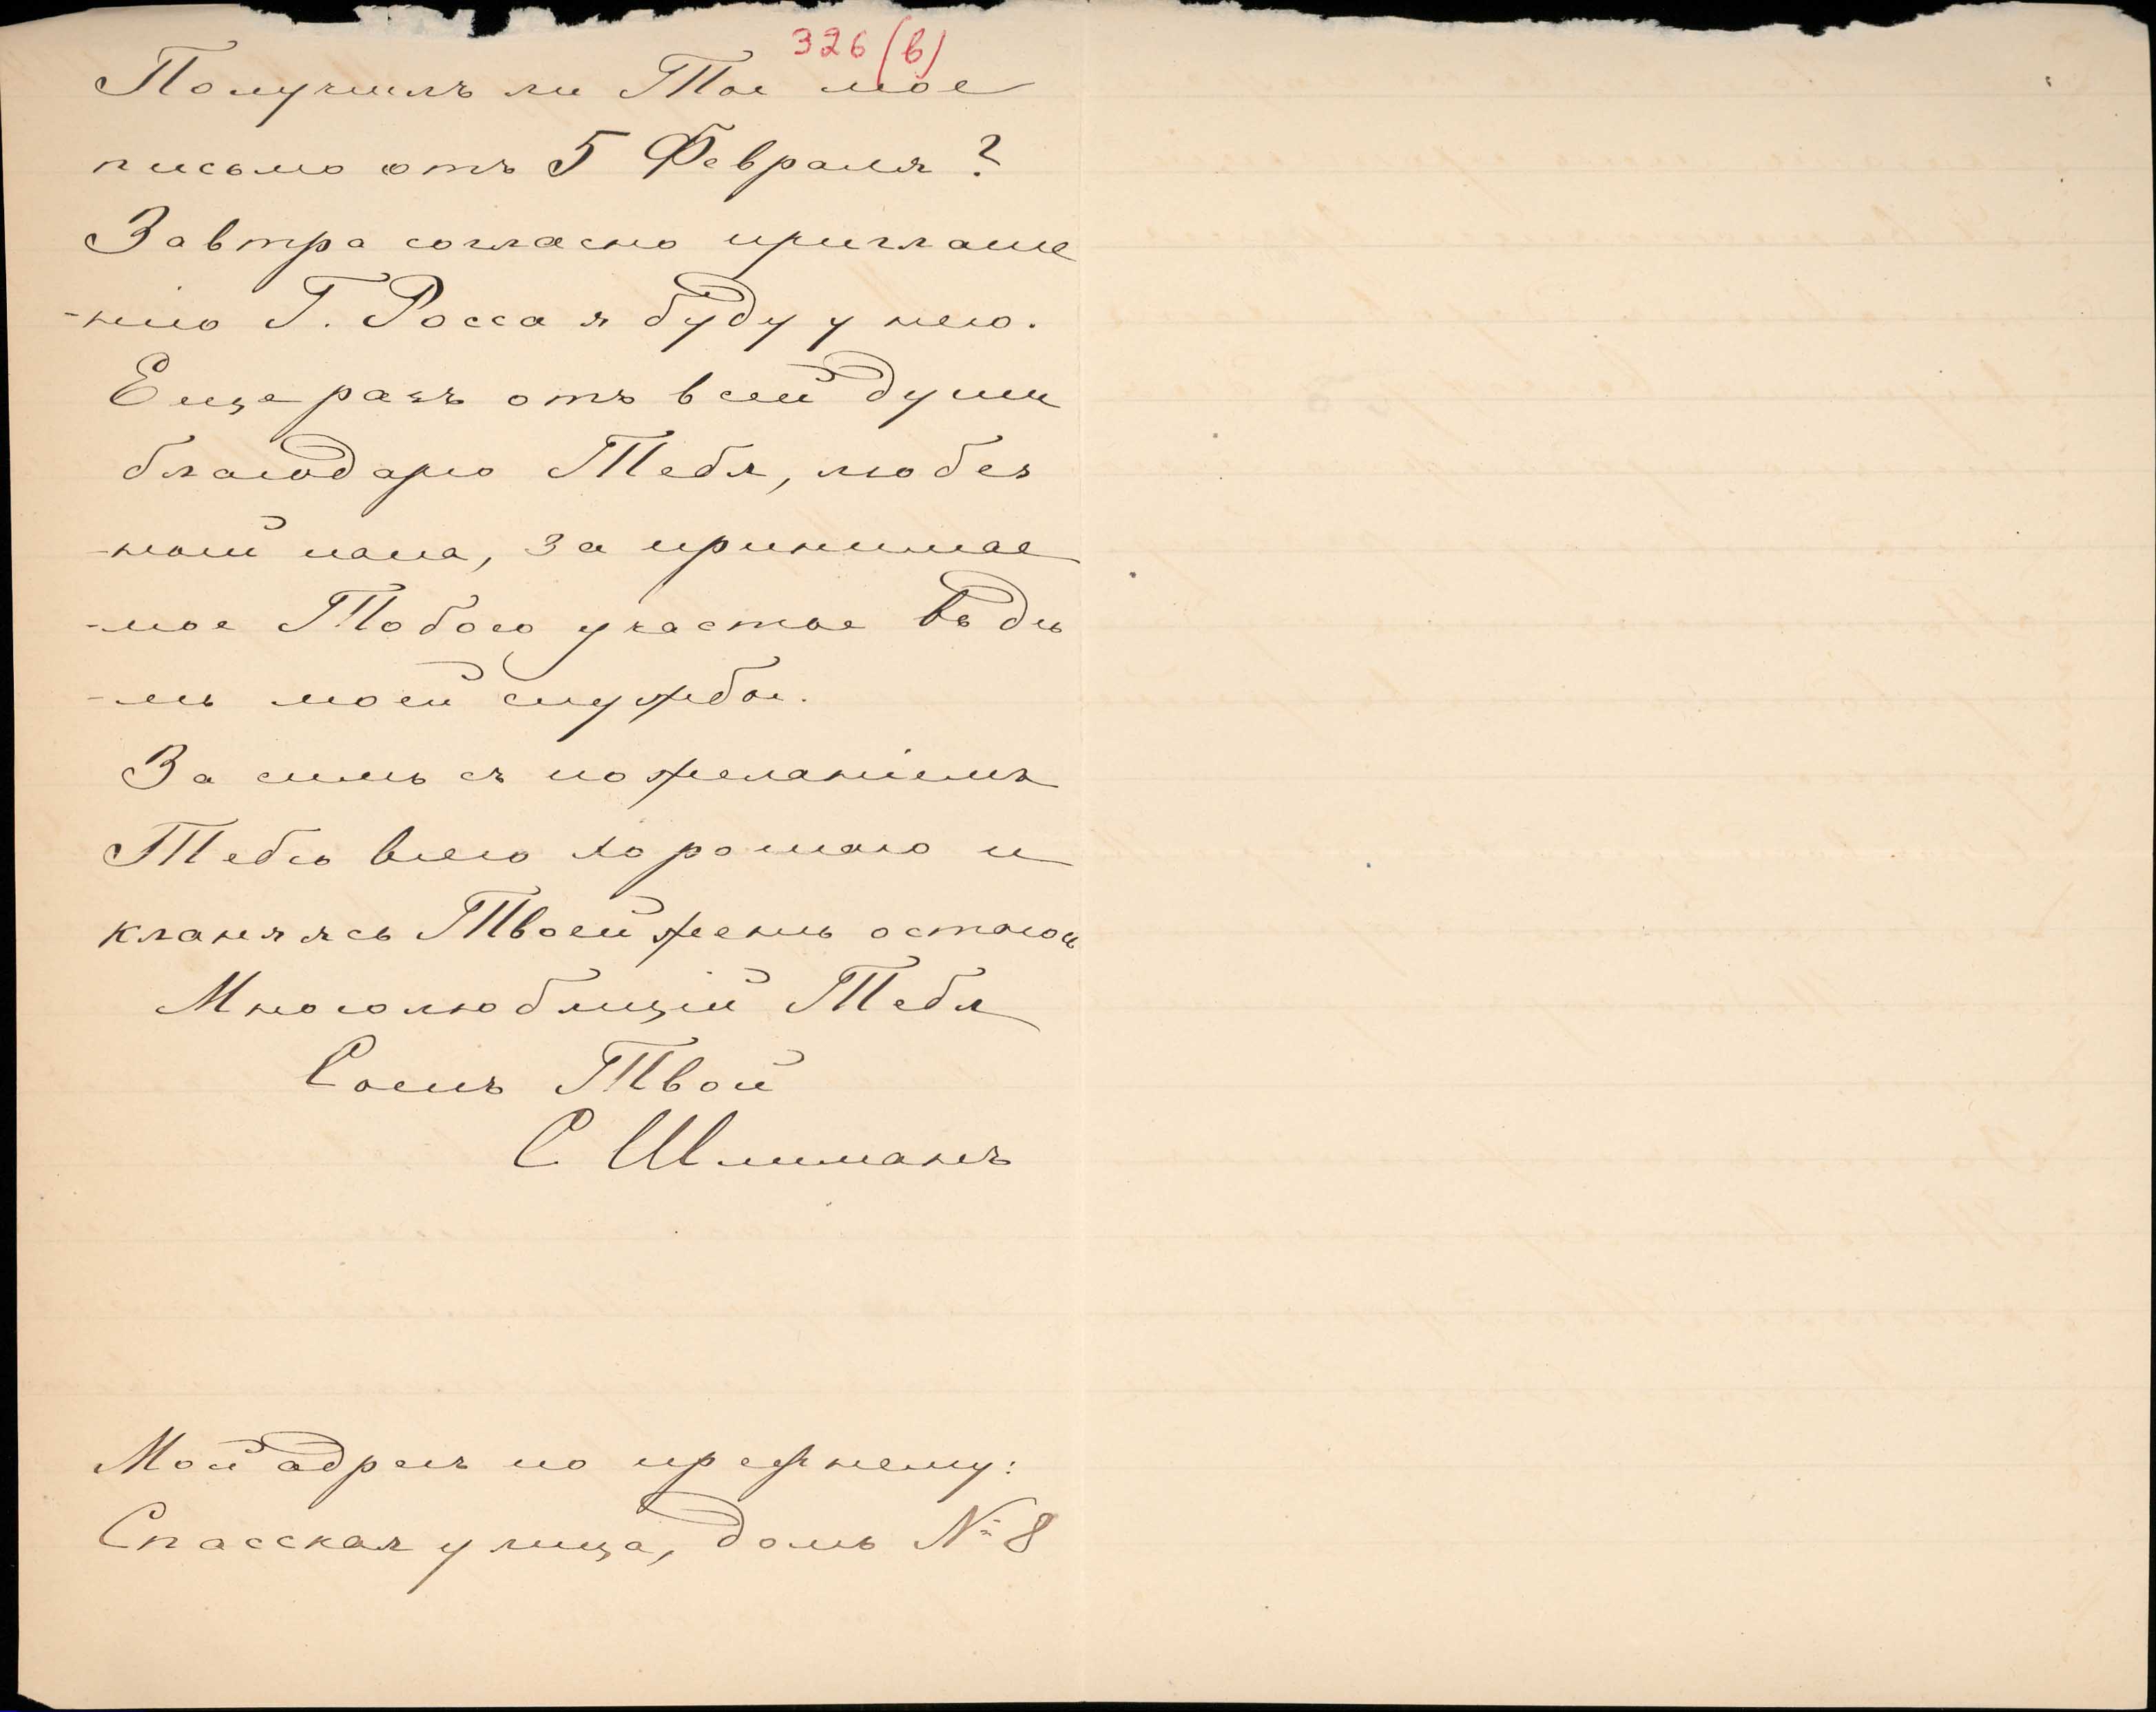 326 (b)
Получилъ ли Ты мое
письмо отъ 5 Февраля?
Завтра согласно приглаше
-нію Г. Росса я буду у него.
Еще разъ отъ всей души
благодарю Тебя, любез
-ный папа, за принимае
-мое Тобою участіе въ дѣ
-лѣ моей службы.
За симъ съ пожеланіемъ
Тебѣ всего хорошаго и
кланяясь Твоей женѣ остаюсь
Многолюбящій Тебя
Сынъ Твой
С Шлиманъ
Мой адресъ по прежнему:
Спасская улица, домъ № 8